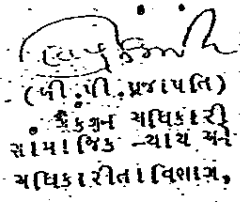 (બી.પી.પ્રજાપતિ)
સેકશન અધિકારી
સામાજિક ન્યાય અને
અધિકારીતા વિભાગ,